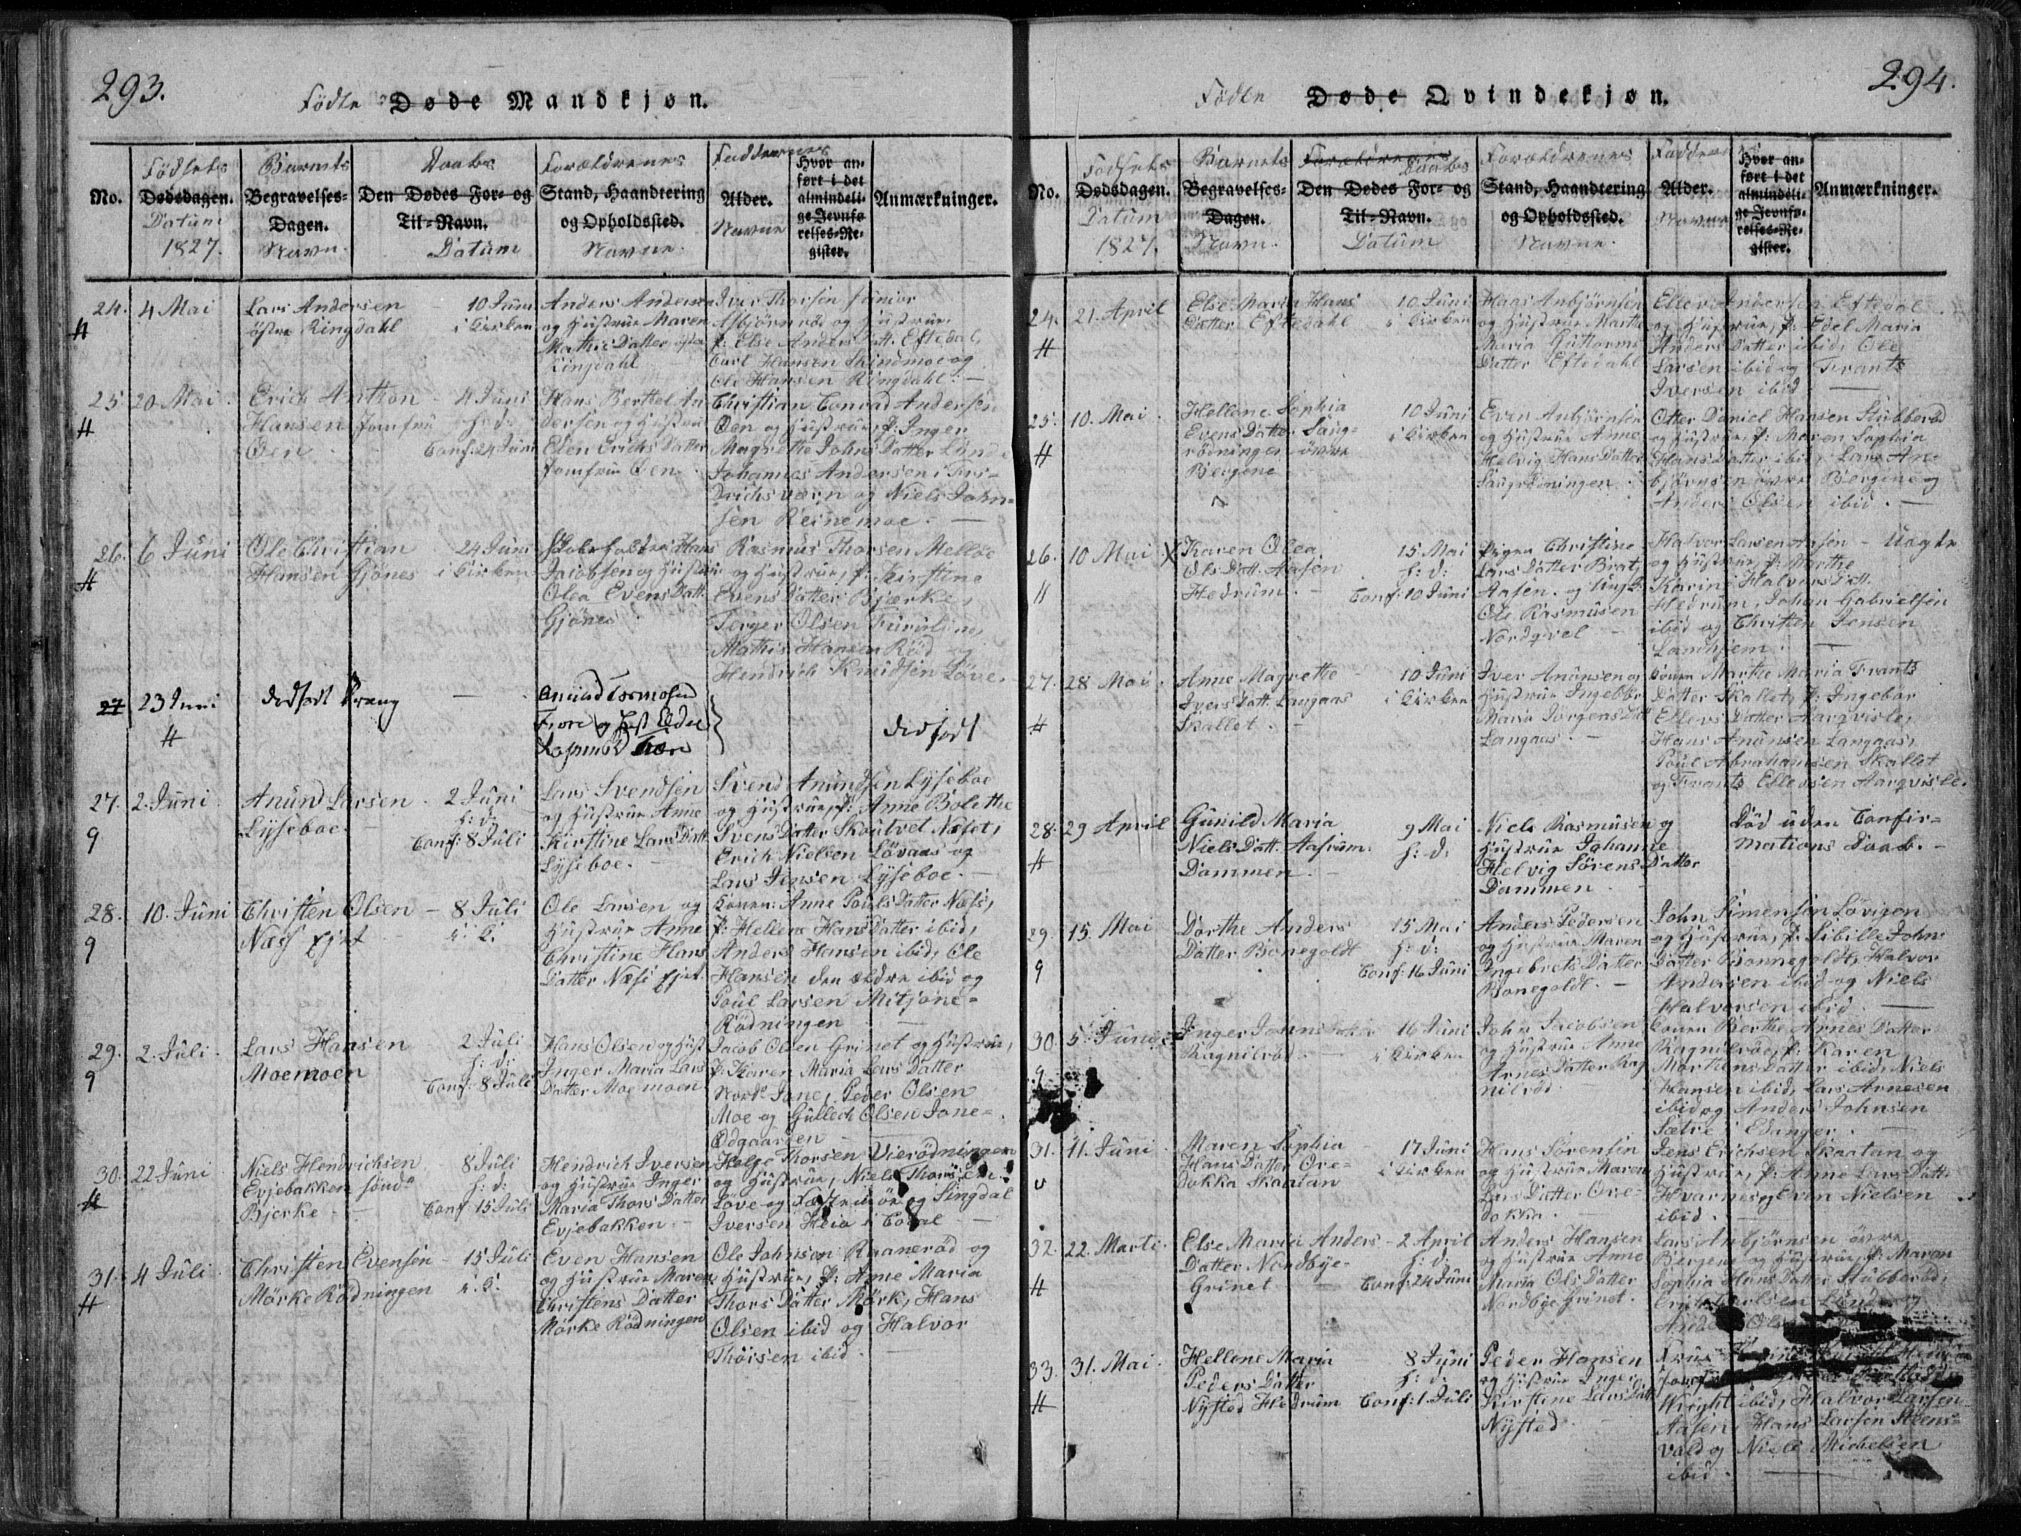 293.
Födte Døde Mandkjøn.
No.
Födsels
Dødsdagen.
Datum
1827.
Barnets
Begravelses-
Dagen.
Navn.
Daabs
Den Dødes For- og
Til-Navn.
Datum
Forældrenes
Stand, Haandtering
og Opholdssted.
Navne.
Faddernes
Alder.
Navne
Hvor an-
ført i det
almindeli-
ge Jevnfø-
relses-Re-
gister.
Anmærkninger.
24.
4 Mai
Lars Andersen
östre Ringdahl
10 Juni
i Kirken
Anders Andersen
og Hustrue Maren
Mathis Datter östre
Ringdahl
Iver Thorsen senior
Asbjörnröd og Hustrue,
p: Else Anders Datt. Eftedal,
Carl Hansen Skindmoe og
Ole Hansen Ringdahl. —
25
20 Mai
Erich Anthon
Hansen Jomfrü
Öen
4 Juni
h: d:
Conf: 24 Juni
Hans Berthel An
dersen og Hustrue
Elen Erichs Datter
Jomfrue Öen
Christian Conrad Andersen
Öen og Hustrue, p: Inger
Magrette Johns Datter
Johannes Andersen i Fri-
drichsværn og Niels John-
sen Reinemoe. —
26.
6 Juni
Ole Christian
Hansen Gjönes
24 Juni
i Kirken
Hans
Jacobsen og Hustrue
Olea Evens Datt.
Gjönes
Rasmus Thorsen Melløe
og Hustrue, p: Kirstine
Evens Datter Bjærke,
Torger Olsen Furulund,
Mathis Hansen Röd
Hendrich Knudsen Löve.
27
23 Juni
dödfödt Dreng
Amund Tormosen
og Hust
dødfødt
27.
2. Juni
Anund Larsen
Lyseboe.
2 Juni
h: d:
Conf: 8 Juli
Lars Svendsen
og Hustrue Anne
Kirstine Lars Datt.
Lyseboe.
Svend Anundsen Lyseboe
og Hustrue, p: Anne Bolethe
Ivers Datter Skoutvet Næset,
Erich Nielsen Lövaas og
Lars Jensen Lyseboe. —
28.
10. Juni
Christen Olsen
Næss Ejet
8 Juli
i: K.
Ole Larsen og
Hustrue Anne
Christine Hans
Datter Næss Ejet.
Konen: Anne Pouls Datter Næss,
p: Hellene Hans Datter ibid,
Anders Hansen ibid, Ole
Hansen den ældre ibid og
Poul Larsen Mitjone-
Rödningen
29.
2. Juli
Lars Hansen
Moemoen
2 Juli
h: d:
Conf: 8 Juli
Hans Olsen og Hust
Inger Maria Lars
Datter Moemoen
Jacob Olsen Grinet og Hustrue,
p: Karen Maria Lars Datter
Nordr Jone, Peder Olsen
Moe og Gullech Olsen Jone-
Odgaarden
30.
22 Juni
Niels Hendrichsen
Evjebakken sönd.
Bjerke
8 Juli
h: d:
Conf 15 Juli
Hendrich Iversen
og Hustrue Inger
Maria Thors Datter
Evjebakken.
Helge Thorsen Vierödningen
og Hustrue, Niels Thorsen
Löve og Söstrene og Singdal
Iversen Heia i Codal —
31.
4 Juli
Christen Evensen
Mörke Rödningen
15 Juli
i. K.
Even Hansen
og Hustrue Maren
Christens Datter
Mörke Rödningen
Ole Johnsen Raaneröd og
Hustrue, p: Anne Maria
Thors Datter Mörk, Hans
Olsen ibid og Halvor
Thorsen ibid.
294.
Fødte Døde Qvindekjøn.
No.
Födsels
Dødsdagen.
Datum
1827.
Barnets
Begravelses-
Dagen.
Navn.
Forældrenes
Daabs
Den Dødes For- og
Til-Navn.
Datum
Forældrenes
Stand, Haandtering
og Opholdssted.
Navne.
Faddernes
Alder.
Navne
Hvor an-
ført i det
almindeli-
ge Jevnfø-
relses-Re-
gister.
Anmærkninger.
24.
21. April
Else Maria Hans
Datter Eftedahl
10 Juni
i Kirken
Hans Anbjörnsen
og Hustrue Marthe
Maria Guttorms
Datter Eftedahl
Ellev Andersen Eftedal
og Hustrue, p: Edel Maria
Anders Datter ibid, Ole
Larsen ibid og Frants
Iversen ibid —
25.
10. Mai
Hellene Sophia
Evens Datter Saug-
rödningen övre
Bergene
10 Juni
i Kirken
Even Anbjörnsen
og Hustrue Anne
Helvig Hans Datter
Saugrödningen
Otter Daniel Hansen Stubberöd
og Hustrue, p: Maren Sophia
Hans Datter ibid, Lars An-
björnsen övre Bergene og
Anders Olsen ibid. —
26.
10 Mai
Karen Olea
Ols Datt. Aasen
Hedrum.
15 Mai
h: d:
Conf: 10 Juni
Pigen Christine
Lars Datter Brat
Aasen. og Ungk.
Ole Rasmusen
Nordqvel
Halvor Larsen Aasen
og Hustrue, p: Marthe
Karine Halvors Datt.
Hedrum, Johan Gabrielsen
ibid og Christen Jensen
Landhjem.
Uægte
27.
28 Mai
Anne Magrette
Ivers Datt. Langaas
Skallet.
10 Juni
i Kirken
Iver Anunsen og
Hustrue Ingeborg
Maria Jörgens Datt
Langaas.
Konen Marthe Maria Frants
Datter Skallet, p: Ingebor
Ellevs Datter Aarqvisle,
Hans Anunsen Langaas,
Poul Abrahamsen Skallet
og Frants Ellevsen Aarqvisle.
28.
29 April
Gunild Maria
Niels Datt. Aasrum.
Dammen.
9 Mai
h: d:
Niels Rasmusen og
Hustrue Johanne
Helvig Sörens Datter
Dammen
Död uden Confir-
mations Daab. —
29.
15. Mai
Dorthe Anders
Datter Bonegoldt
15 Mai
h: d:
Conf 16 Juni
Anders Pedersen
og Hustrue Maren
Ingebrets Datter
Bonegoldt.
John Simensen Lövigen
og Hustrue, p: Sibille Johns
Datter Bonnegoldt, Halvor
Andersen ibid og Niels
Halvorsen ibid.
30.
5 Juni
Inger Johns Datter
Ragnilröd
16 Juni
i Kirken
John Jacobsen
og Hustrue Anne
Arnes Datter Rag
nilröd
Konen Berthe Arnes Datter
Ragnilröd, p: Karen
Morthens Datter ibid, Niels
Hansen ibid, Lars Arnesen
ibid og Anders Johnsen
Sætre i Edanger.
31.
11. Juni
Maren Sophia
Hans Datter Ore-
dokka Skaatan
17 Juni
i Kirken
Hans Sörensen
og Hustrue Maren
Lars Datter Ore-
dokka.
Jens Erichsen Skaatan og
Hustrue, p: Anne Lars Datt.
Hvarnes og Even Nielsen
ibid.
32.
22. Marti
Else Maria Anders
Datter Nordbye-
Grinet
2 April
h: d:
Conf: 24 Juni
Anders Hansen
og Hustrue Anne
Maria Ols Datter
Nordbye Grinet.
Lars Anbjörnsen övre
Bergene og Hustrue, p: Maren
Sophia Hans Datter Stubberöd,
33.
31. Mai
Hellene Maria
Peders Datter
Nysted Hedrum
8 Juni
h: d:
Conf: 1 Juli
Peder Hansen
og Hustrue Inger
Kirstine Lars Datt
Nysted.
Frue
Wright ibid, Halvor Larsen
Aasen, Hans Larsen Steens-
vold og Niels Michelsen
ibid.